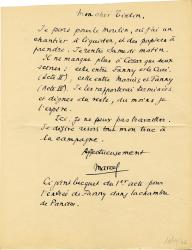 Mon cher Tintin,
Je pars pour le moulin, où j'ai un
chantier à liquider, et des papiers à
prendre. Je rentre samedi matin.
Il ne manque plus à César que deux
scènes : celle entre Fanny et le Curé
(Acte II) celle entre Marius et Fanny
(Acte III). Je les rapporterai terminées
et dignes du reste, du moins je
l'espère.
Ici, je ne peux pas travailler.
Je désire revoir tout mon texte à
la campagne.
Affectueusement
Marcel
Ci-joint becquet du 1er acte pour
l'entrée de Fanny dans la chambre
de Panisse.